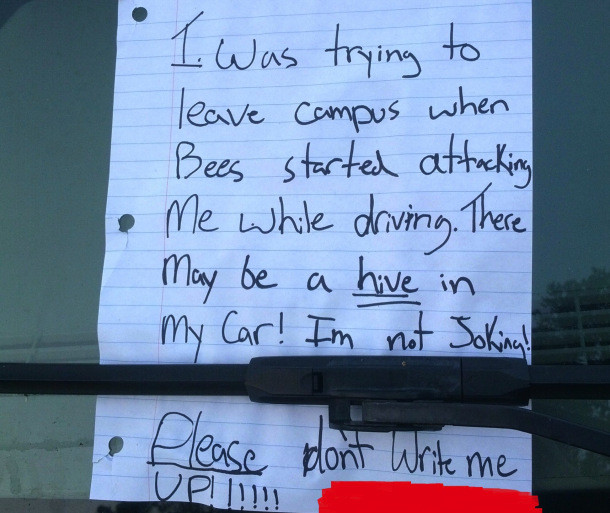 I was trying to
leave campus when
Bees started attacking
Me while driving. There
May be a hive in
My Car! Im not Joking!
Please don't Write me
UP!!!!!!